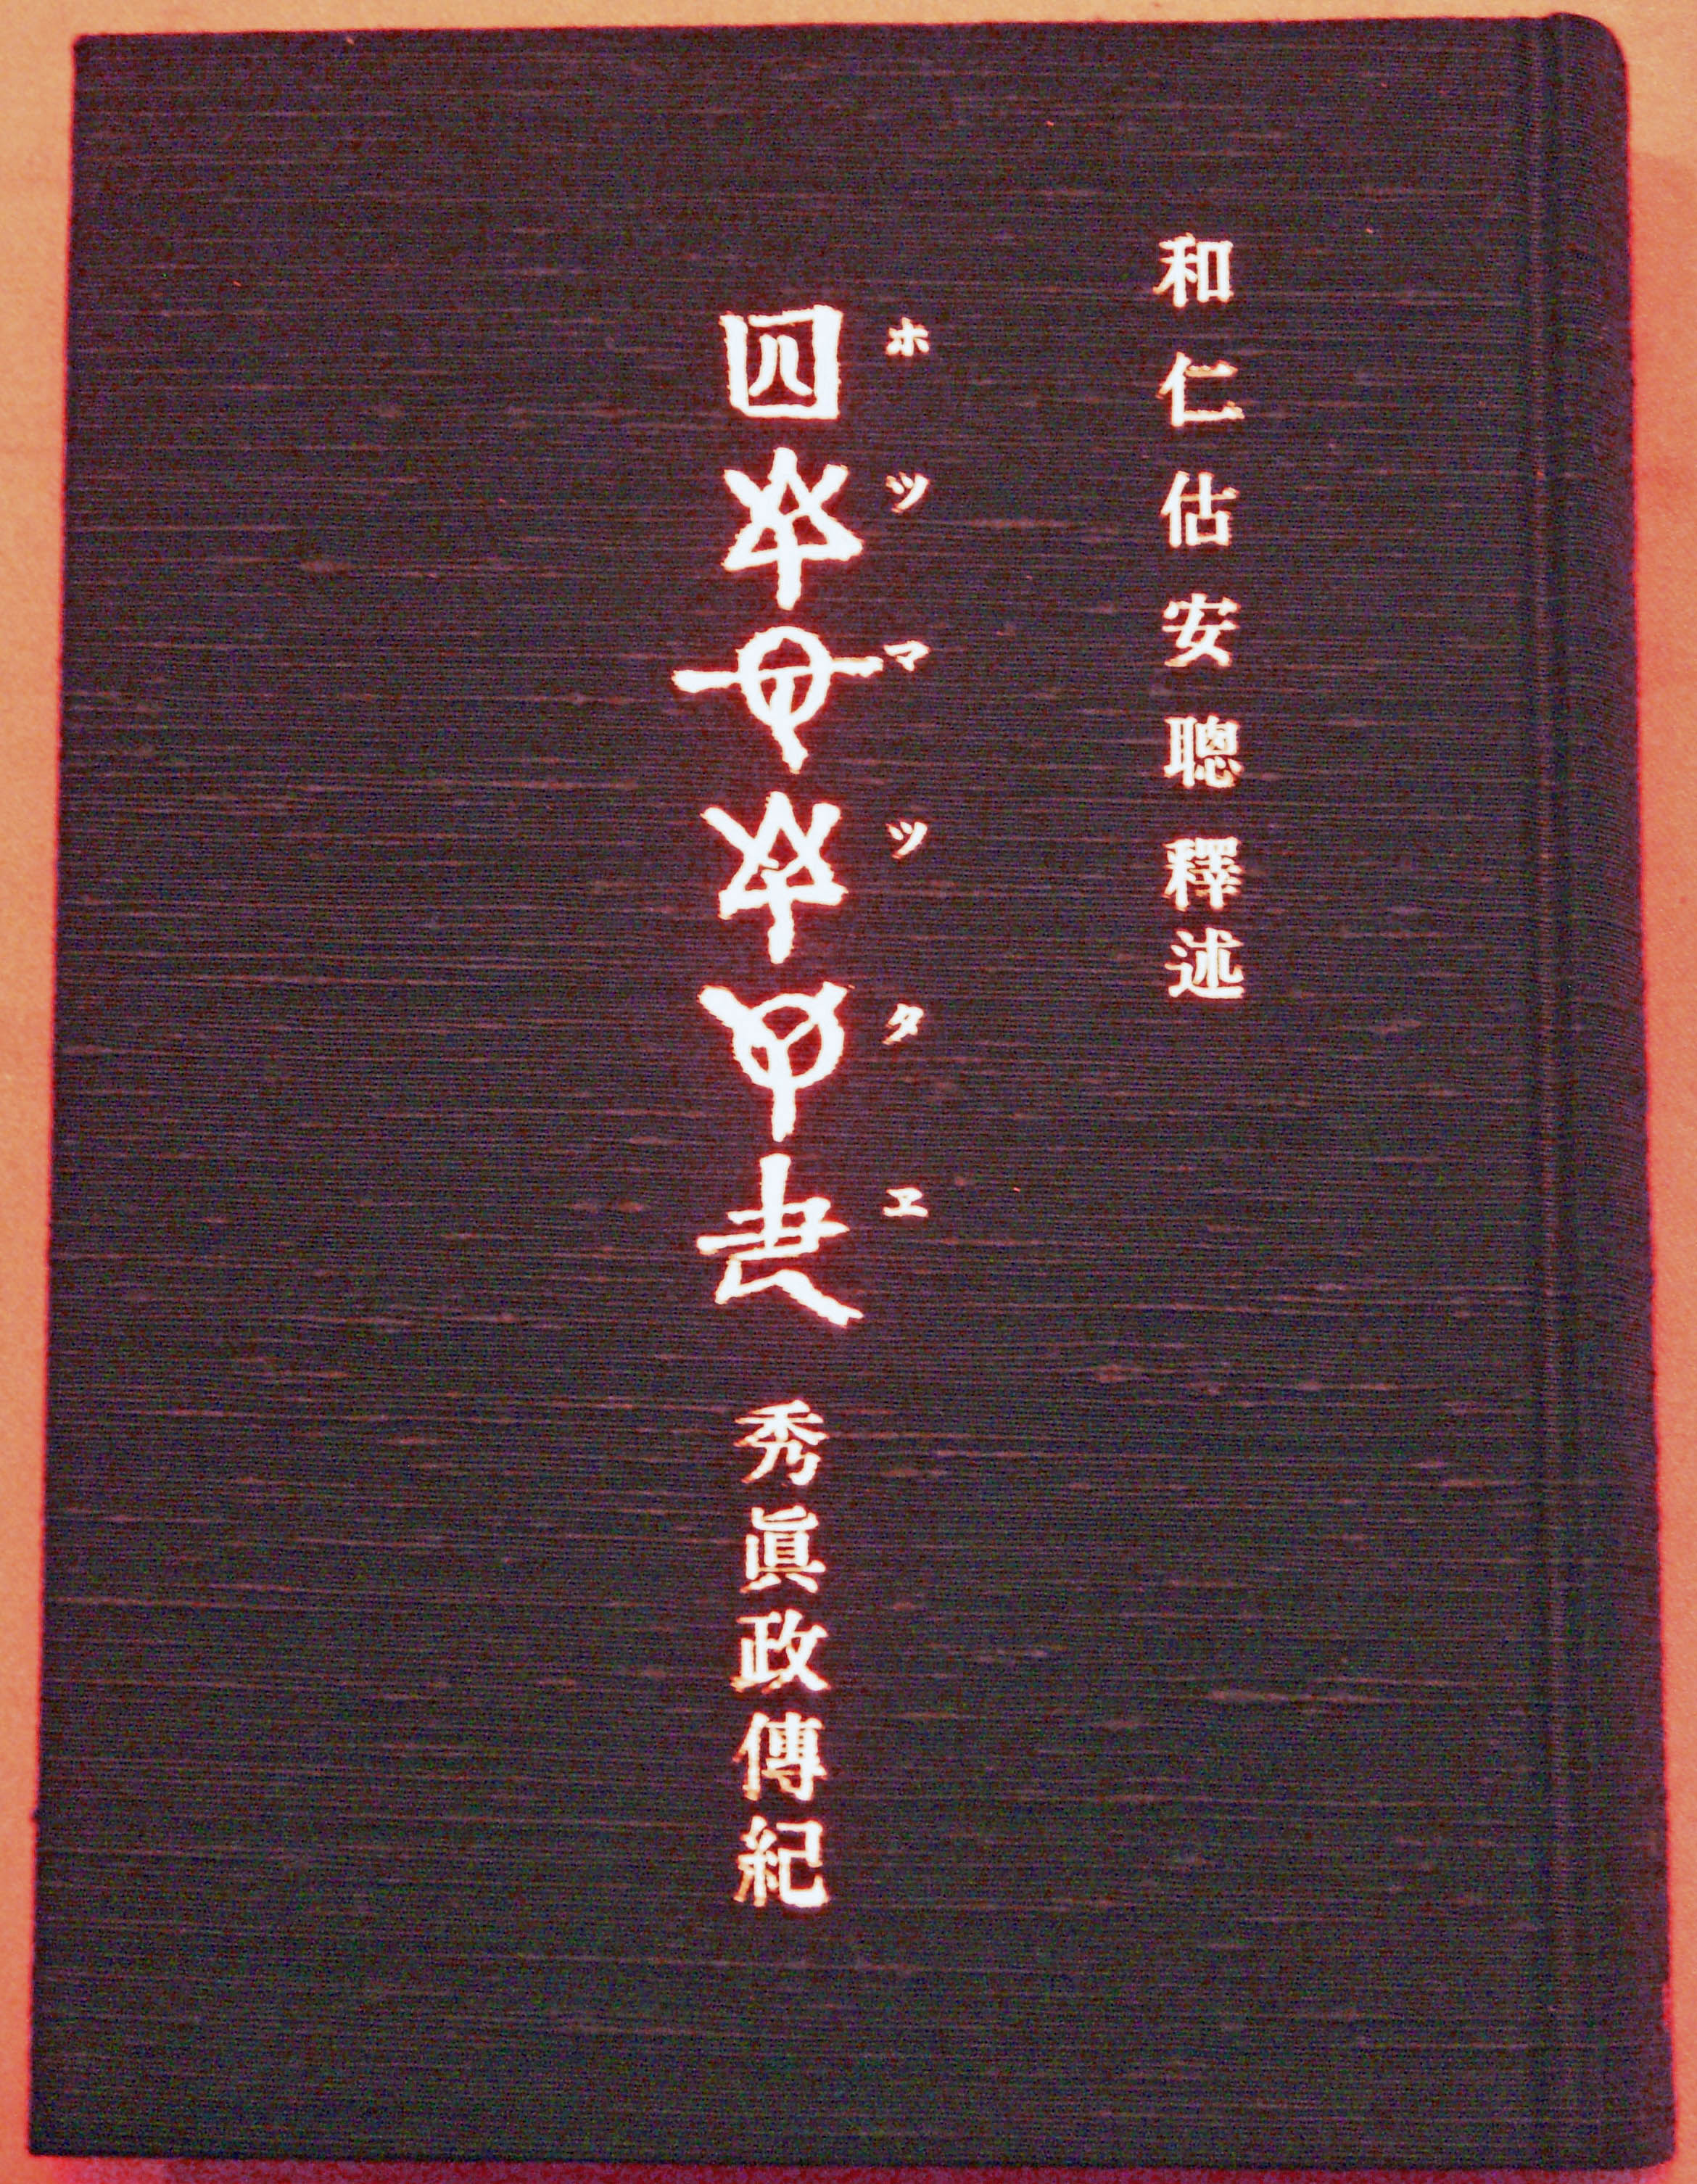 和仁估安聰釋述
ホツマツタヱ
秀眞政傳紀